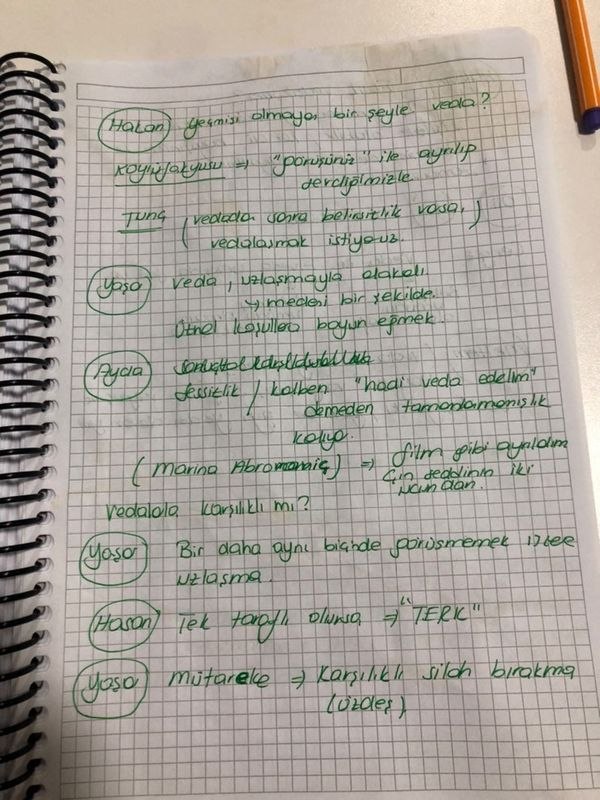 Hasan geçmişi olmayan bir şeyle veda?
"görüşürüz" ile ayrılıp
derdiğimizle
Tunç (vedada sonra belirsizlik varsa,
vedalaşmak istiyoruz.)
Yaşa veda, uzlaşmayla alakalı
↳ medeni bir şekilde.
Öznel koşullara boyun eğmek.
Ayda
sessizlik / kalben "hadi veda edelim"
demeden tamamlanmamışlık
kalıyo.
(Marina Abromamiç) ⇒ film gibi ayrıldım
Çin seddinin iki
ucundan.
vedalar karşılıklı mı?
Yaşa Bir daha aynı biçimde görüşmemek üzere
uzlaşma.
Hasan Tek taraflı olursa ⇒ "TERK"
Yaşa mütareke ⇒ Karşılıklı silah bırakma
(özdeş)